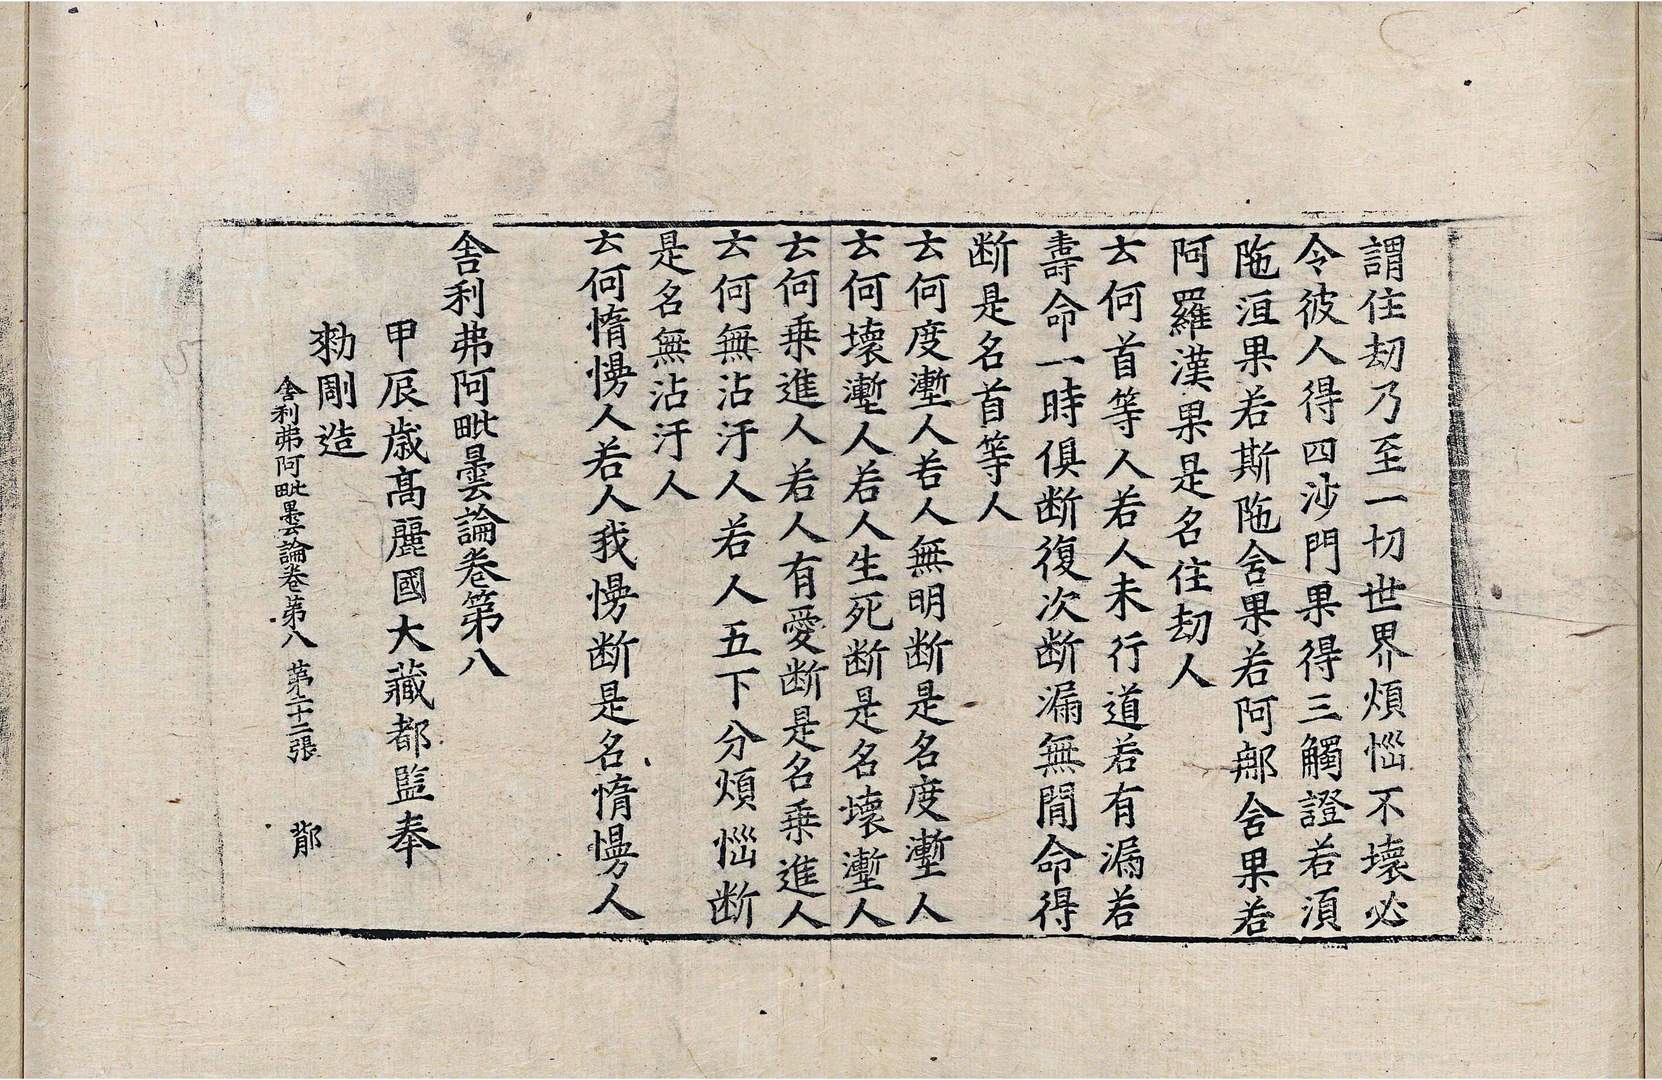 謂住劫乃至一切世界煩惱不壞必
令彼人得四沙門果得三觸證若須
陁洹果若斯陁舍果若阿那舍果若
阿羅漢果是名住劫人
云何首等人若人未行道若有漏若
壽命一時俱断復次断漏無間命得
断是名首等人
云何度塹人若人無明断是名度塹人
云何壞塹人若人生死断是名壞塹人
云何乗進人若人有愛断是名乗進人
云何無沾汙人若人五下分煩惱断
是名無沾汙人
云何惰慢人若人我慢断是名惰慢人
舎利弗阿毗曇論卷第八
甲辰歳髙麗國大藏都監奉
勑剛造
舎利弗阿毗曇論卷第八 第二十二張